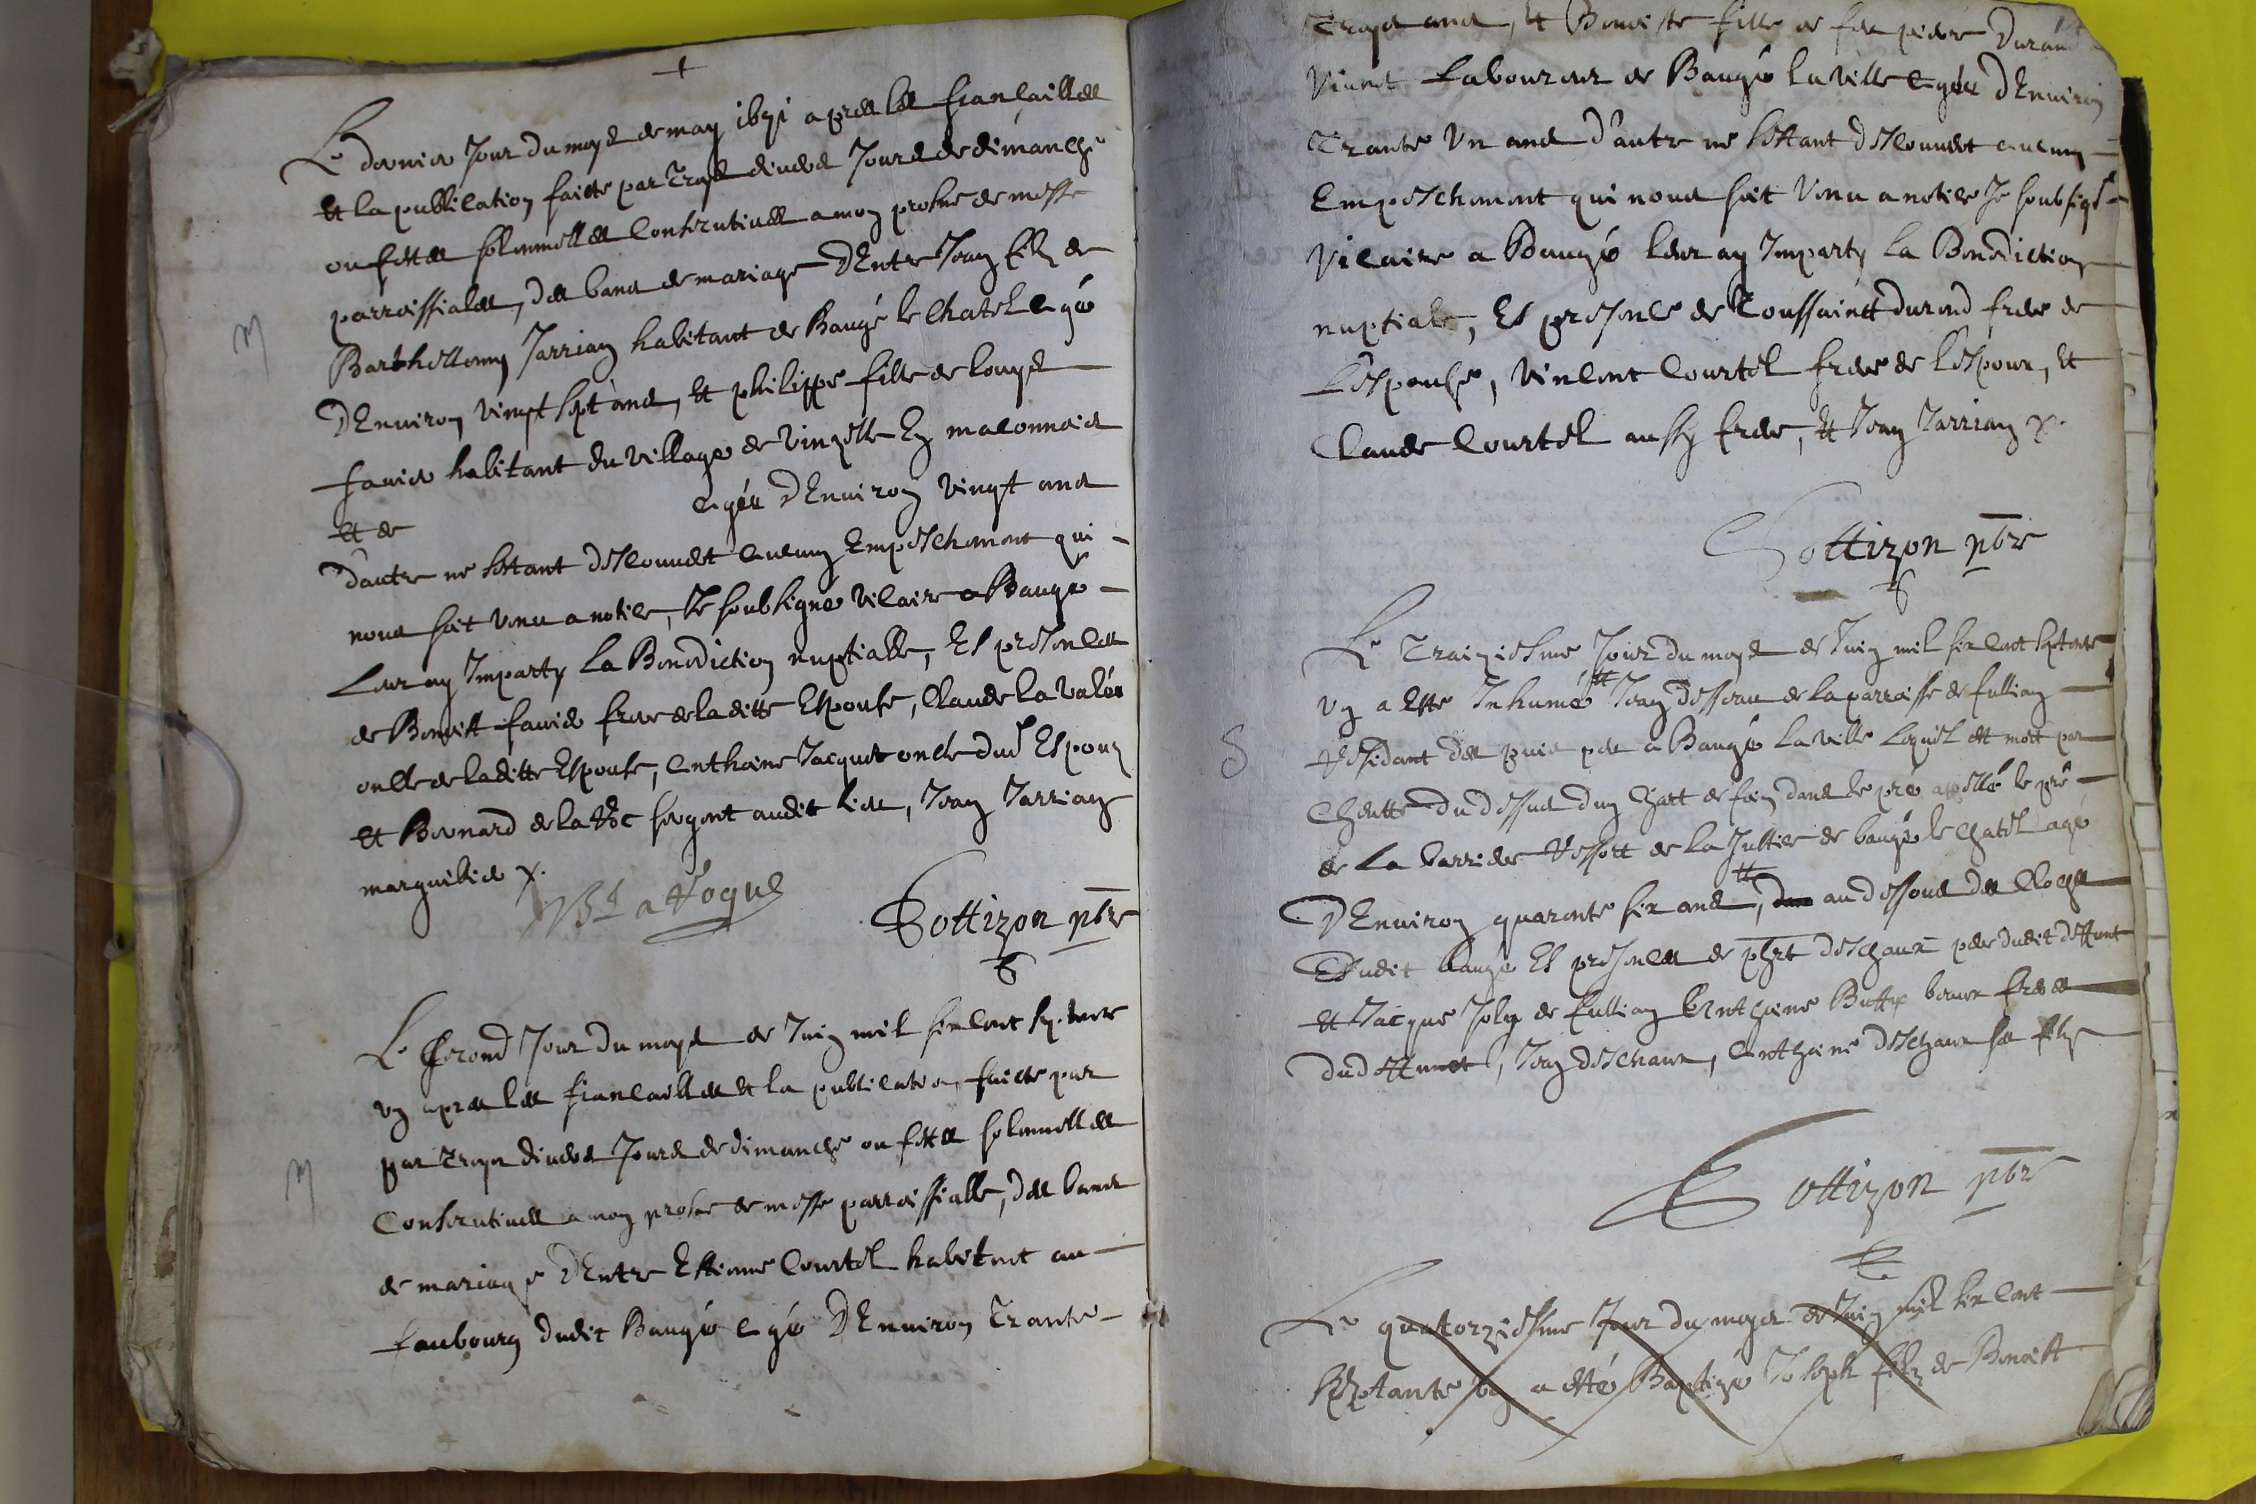 Le dernier Jour du moys de may 1671 apres les fiancailles
et la publication faicte par troys divers Jours de dimanche
ou festes solemnelles consecutives a mon prosne de messe
parroissiales, des bans de mariage D'Entre Jean filz de
M
Barthellemy Jarrian habitant de Baugé le Chatel egé
D'Environ vingt sept ans, et philippe fille de Louys
favier habitant du village de Vinzelle En maconnois
et de egée D'Environ vingt ans
D'autre ne s'estant descouvert aucun Empeschement qui
nous soit venu a notice, Je soubsigné vicaire a Baugé
Leur ay Imparty La Benediction nuptialle, Es presences
de Benoist favier frere de laditte Espouse, Claude la valée
oncle de laditte Espouse, Anthoine Jacquet oncle dud Espoux
et Bernard de la Roc sergent audit lieu, Jean Jarrian
marguilier
Cottizon pbre
Le second Jour du moys de Juin mil six cent septante
un apres les fiancailles et la publication faicte par
par troys divers Jours de dimanche ou festes solemnelles
M
Consecutives a mon prosne de messe parroissialle, des bans
de mariage D'Entre Estienne Courtel habitant au
faubourg dudit Baugé egé D'Environ Trante
Troys ans, et Benoiste fille de feu pierre Durand
vivant Laboureur de Baugé la ville egée D'Environ
Trante un ans D'autre ne s'estant descouvert aucun
Empeschement qui nous soit venu a notice Je soubsigé
vicaire a Baugé leur ay Imparty la Benediction
nuptiale, Es presence de Toussaintt durand frere de
L'espouse, Vincent Courtel frere de L'espoux, et
Claude Courtel aussy frere, et Jean Jarrian
Cottizon pbre
Le Traiziesme Jour du moys de Juin mil six cent septante
un a este Inhumé Jean desseaux de la parroisse de fullian
S
residant des puis peu a Baugé la ville Lequel est mort par
Cheutte du dessus d'un Chart de foin dans le pré apellé le pré
de La barriere ressort de la Justice de baugé le Chatel agé
D'Environ quarente six ans, au dessous des Cloches
Dudit baugé Es presences de deschaux pere dudit deffunt
et Jacque Joly de fullian Anthoine beaux freres
Jean deschaux, Anthoine deschaux ses filz
Cottizon pbre
Le quatorziesme Jour du moys de Juin mil six cent
septante un a esté Baptizé Joseph filz de Benoist